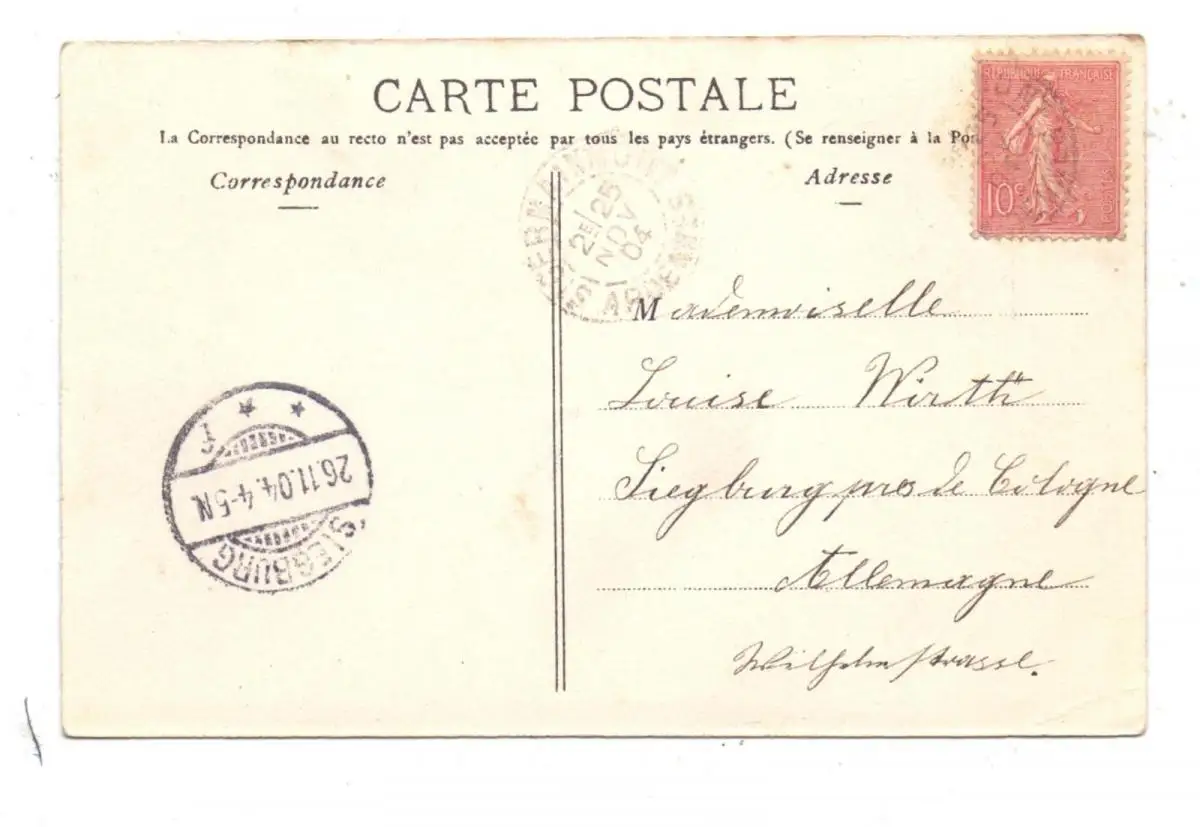 CARTE POSTALE
La Correspondance au recto n'est pas acceptée par tous les pays étrangers. (Se renseigner à la
Correspondance
Adresse
RÉPUBLIQUE FRANÇAISE
10c
POSTES
2E 25
NOV
04
ARDENNES
Mademoiselle
Louise Wirth
Siegburg pres de Cologne
Allemagne
Wilhelmstrasse.
SIEGBURG
26.11.04. 4-5N.
* *